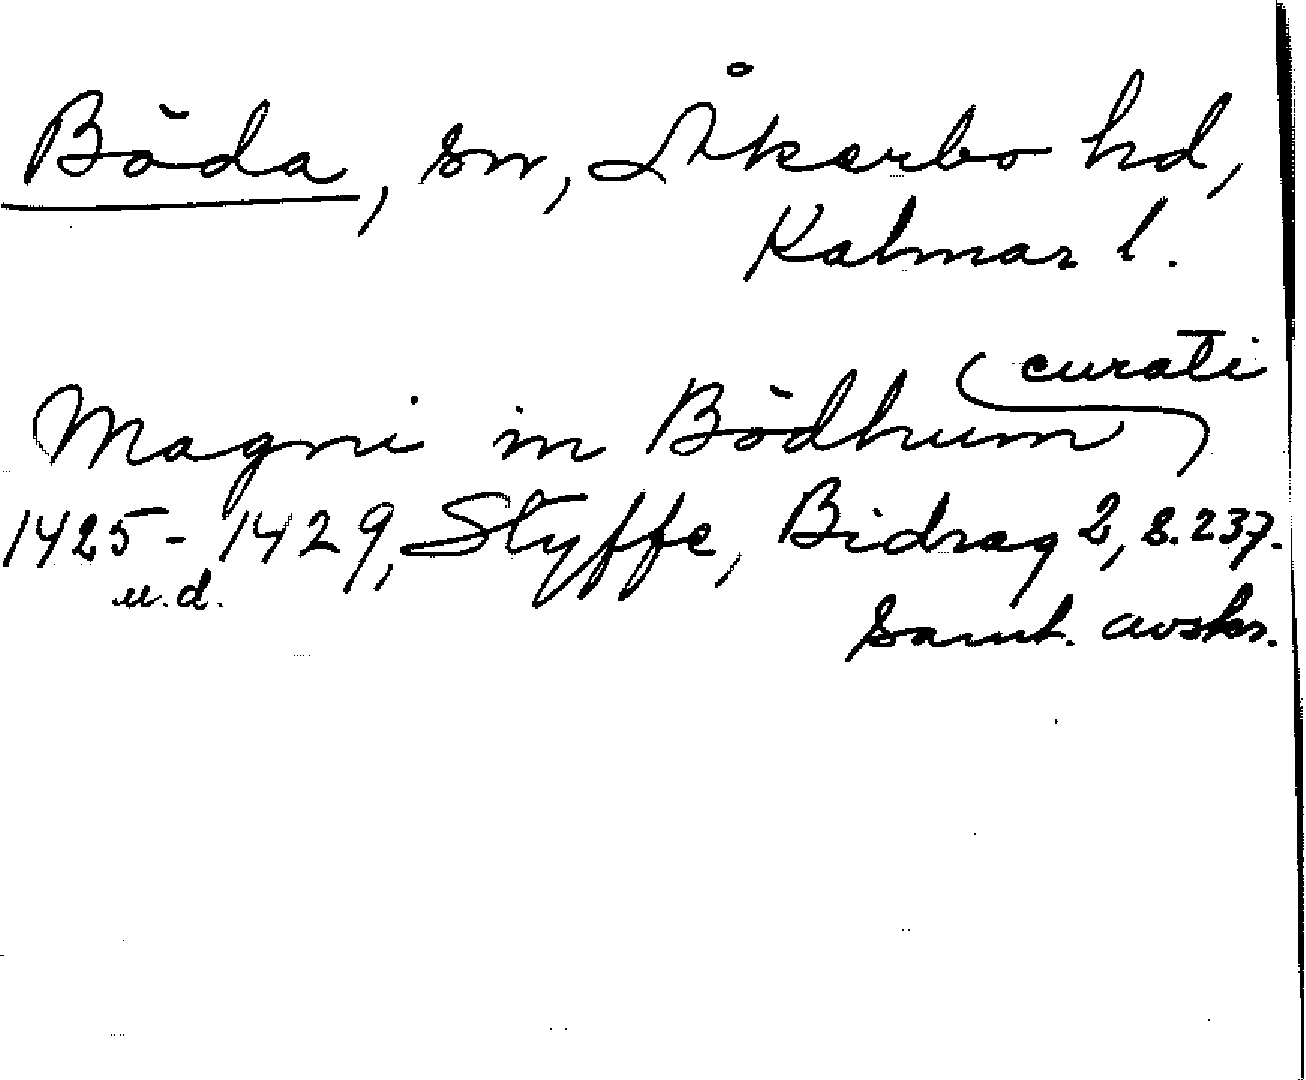 Böda, sn, Åkerbo hd,
Kalmar l.
curati
Magni in Bödhum
1425-1429, Styffe, Bidrag 2, s. 237.
u.d.
Samt. avskr.